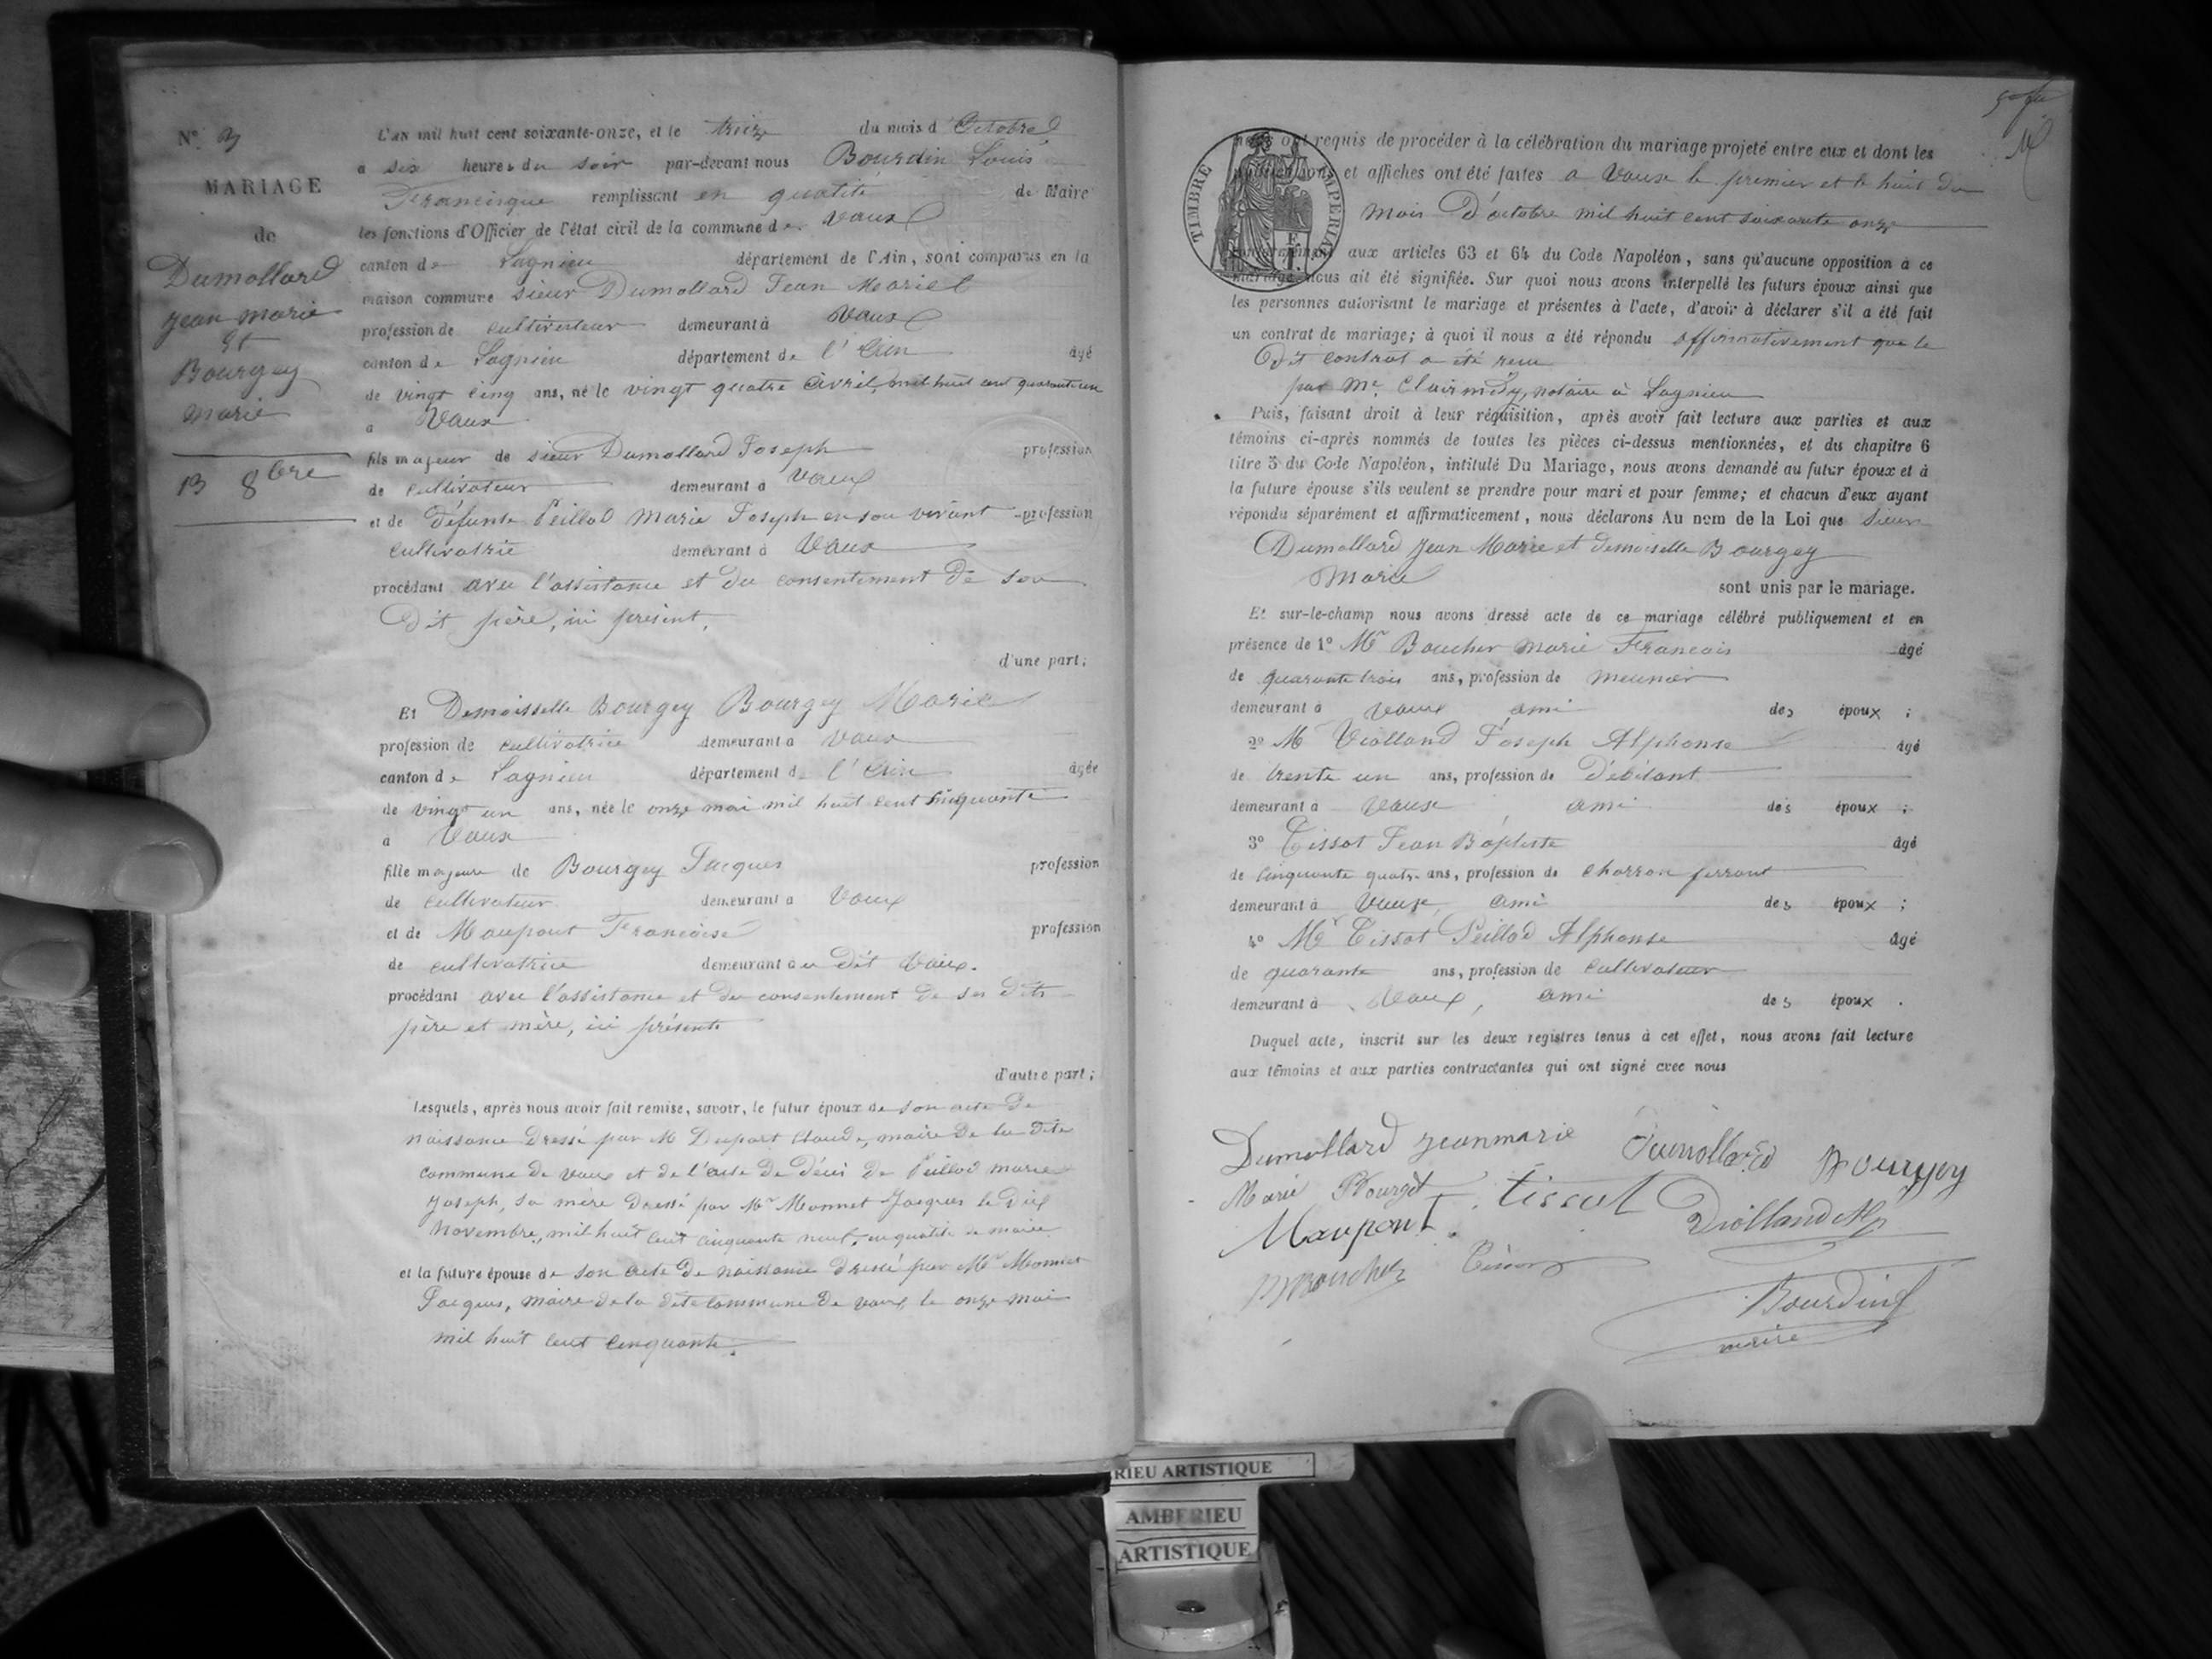 N.° 3
MARIAGE
de
Dumollard
Jean marie
et
Bourgey
marie
13 8bre
L'AN mil huit cent soixante-onze, et le treize du mois d Octobre
a six heures du soir par-devant nous Bourdin Louis
Francisque remplissant en qualité de Maire
les fonctions d'Officier de l'état civil de la commune de Vaux
canton de Lagnieu département de l'Ain, sont comparus en la
maison commune sieur Dumollard Jean Marie
profession de cultivateur demeurant à Vaux
canton de Lagnieu département de l'Ain âgé
de vingt cinq ans, né le vingt quatre avril mil huit cent quarante
à Vaux
fils majeur de sieur Dumollard Joseph profession
de cultivateur demeurant à Vaux
et de défunte Peillod Marie Joseph en son vivant profession
cultivatrice demeurant à Vaux
procédant avec l'assistance et du consentement de son
dit père, ici présent,
d'une part;
Et Demoisselle Bourgey Bourgey Marie
profession de cultivatrice demeurant à Vaux
canton de Lagnieu département de l'Ain âgée
de vingt un ans, née le onze mai mil huit cent cinquante
à Vaux
fille majeure de Bourgey Jacques profession
de cultivateur demeurant à Vaux
et de Maupont Francoise profession
de cultivatrice demeurant au dit Vaux.
procédant avec l'assistance et du consentement de ses dits
père et mère, ici présents
d'autre part;
Lesquels, après nous avoir fait remise, savoir, le futur époux de son acte de
naissance dressé par M Dupart Claude, maire de la dite
commune de Vaux et de l'acte de décès de Peillod marie
Joseph, sa mère dressé par Mr Monnet Jacques le dix
Novembre, mil huit cent cinquante neuf, en qualité de maire
et la future épouse de son acte de naissance dressé par Mr Monnet
Jacques, maire de la dite commune de Vaux le onze mai
mil huit cent cinquante.
TIMBRE IMPERIAL
nous ont requis de procéder à la célébration du mariage projeté entre eux et dont les
publications et affiches ont été faites a Vaux le premier et le huit du
mois d'octobre mil huit cent soixante onze
conformément aux articles 63 et 64 du Code Napoléon, sans qu'aucune opposition à ce
mariage nous ait été signifiée. Sur quoi nous avons interpellé les futurs époux ainsi que
les personnes autorisant le mariage et présentes à l'acte, d'avoir à déclarer s'il a été fait
un contrat de mariage; à quoi il nous a été répondu affirmativement que le
dit contrat a été recu
par Me Clairmidy, notaire à Lagnieu
Puis, faisant droit à leur réquisition, après avoir fait lecture aux parties et aux
témoins ci-après nommés de toutes les pièces ci-dessus mentionnées, et du chapitre 6
titre 5 du Code Napoléon, intitulé Du Mariage, nous avons demandé au futur époux et à
la future épouse s'ils veulent se prendre pour mari et pour femme; et chacun d'eux ayant
répondu séparément et affirmativement, nous déclarons Au nom de la Loi que sieur
Dumollard Jean Marie et demoiselle Bourgey
Marie sont unis par le mariage.
Et sur-le-champ nous avons dressé acte de ce mariage célébré publiquement et en
présence de 1° Mr Boucher marie Francois âgé
de quarante trois ans, profession de meunier
demeurant à Vaux ami des époux ;
2° M Violland Joseph Alphonse âgé
de trente un ans, profession de Débitant
demeurant à Vaux ami des époux ;
3° Tissot Jean Baptiste âgé
de cinquante quatre ans, profession de charron ferrant
demeurant à Vaux, ami des époux ;
4° Mr Tissot Peillod Alphonse âgé
de quarante ans, profession de cultivateur
demeurant à Vaux, ami des époux .
Duquel acte, inscrit sur les deux registres tenus à cet effet, nous avons fait lecture
aux témoins et aux parties contractantes qui ont signé avec nous
Dumollard jeanmarie Dumollard Bourgey
Marie Bourget tissot Violland
Maupont
Boucher
Bourdin
maire
RIEU ARTISTIQUE
AMBERIEU
ARTISTIQUE